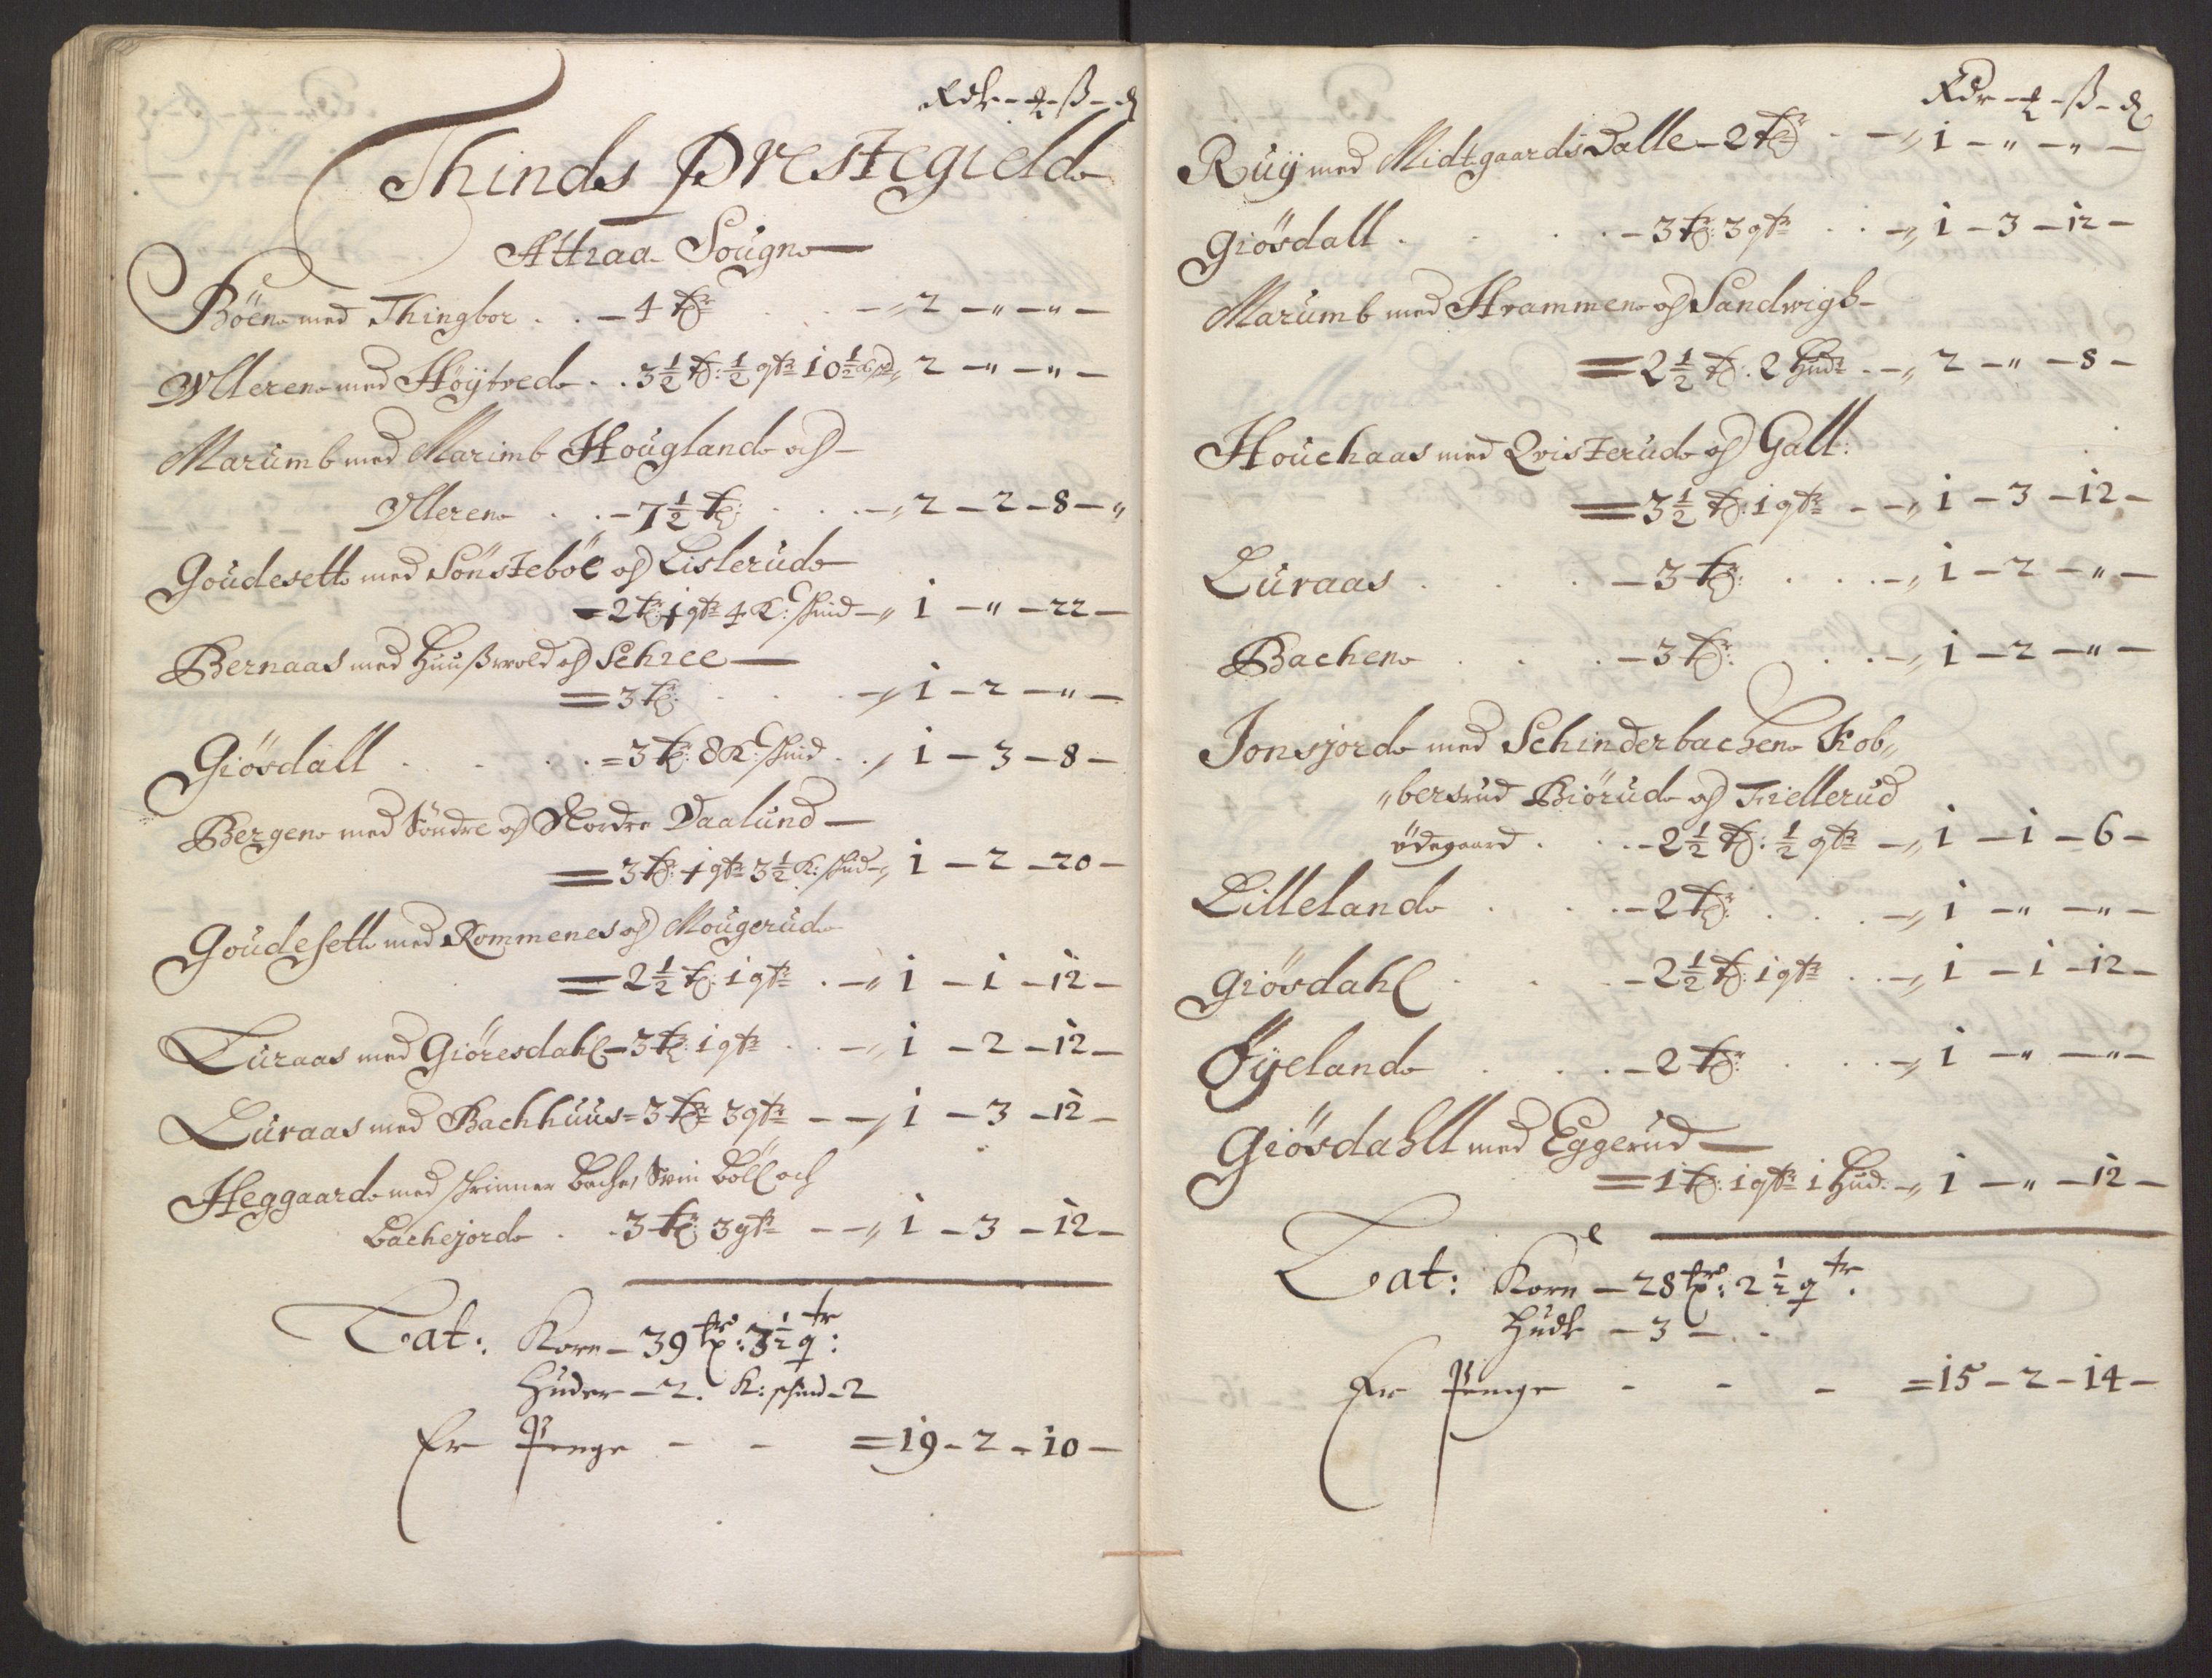 Rdr - ʒ - ß - ₰
Thinds Prestegield
Attraa Sougn
Böen med Thingbor . . - 4 tr - „ 2 - „ - „ -
Ylleren med Höÿtved . . 3½ t: ½ qtr 10½ „ 2 - „ - „ -
Marumb med Marimb Hougland och -
Ylleren . . - 7½ t: . . - „ 2 - 2 - 8 - „
Goudesett med Sönsteböe och Lislerud
= 2 t: 1 qtr 4 K: skind - „ 1 - „ - 22 -
Bernaas med Huußwold och Schree -
= 3 t: . . - „ 1 - 2 - „ -
Giösdall . . . . = 3 t: 8 K: skind . . „ 1 - 3 - 8 -
Bergen med Söndre och Nordre Daalund -
= 3 t: 1 qtr 3½ K: skind - „ 1 - 2 - 20 -
Goudesett med Rommenes och Mougerud
= 2½ t: 1 qtr . - „ 1 - 1 - 12 -
Luraas med Giöresdahl - 3 t: 1 qtr . . - „ 1 - 2 - 12 -
Luraas med Bachhuus = 3 t: 3 qtr - - „ 1 - 3 - 12 -
Heggaard med skrinner Bache, Svin Böll och
Bachejord . . 3 t: 3 qtr - - „ 1 - 3 - 12 -
Lat: Korn - 39 tr: 3½ qtr:
Huder - 2. K: skind - 2
Er Penge - - = 19 - 2 - 10 -
Rdr - ʒ - ß - ₰
Ruÿ med Midtgaards Dalle - 2 t: . - „ 1 - „ - „ -
Giösdall . . . . - 3 t: 3 qtr . . - „ 1 - 3 - 12 -
Marumb med Hrammen och Sandwigh -
= 2½ t: 2 Hudr . - „ 2 - „ - 8 -
Houchaas med Qvisterud och Gall:
= 3½ t: 1 qtr - - „ 1 - 3 - 12 -
Luraas . . . - 3 t: . . . - „ 1 - 2 - „ -
Bachen . . . - 3 t: . . - „ 1 - 2 - „ -
Jonsjord med Schinderbachen Kob„
„bersrud Biörud och Fiellerud
ödegaard . . . - 2½ t: ½ qtr - „ 1 - 1 - 6 -
Lilleland . . . - 2 t: . . . - „ 1 - „ - „ -
Giösdahl . . . - 2½ t: 1 qtr . . - „ 1 - 1 - 12 -
Öÿeland . . . - 2 t: . . . - „ 1 - „ - „ -
Giösdahll med Eggerud -
= 1 t: 1 qtr 1 Hud . - „ 1 - „ - 12 -
Lat: Korn - 28 tr: 2½ qtr.
Hudr - 3 - . -
Er Penge - - - = 15 - 2 - 14 -